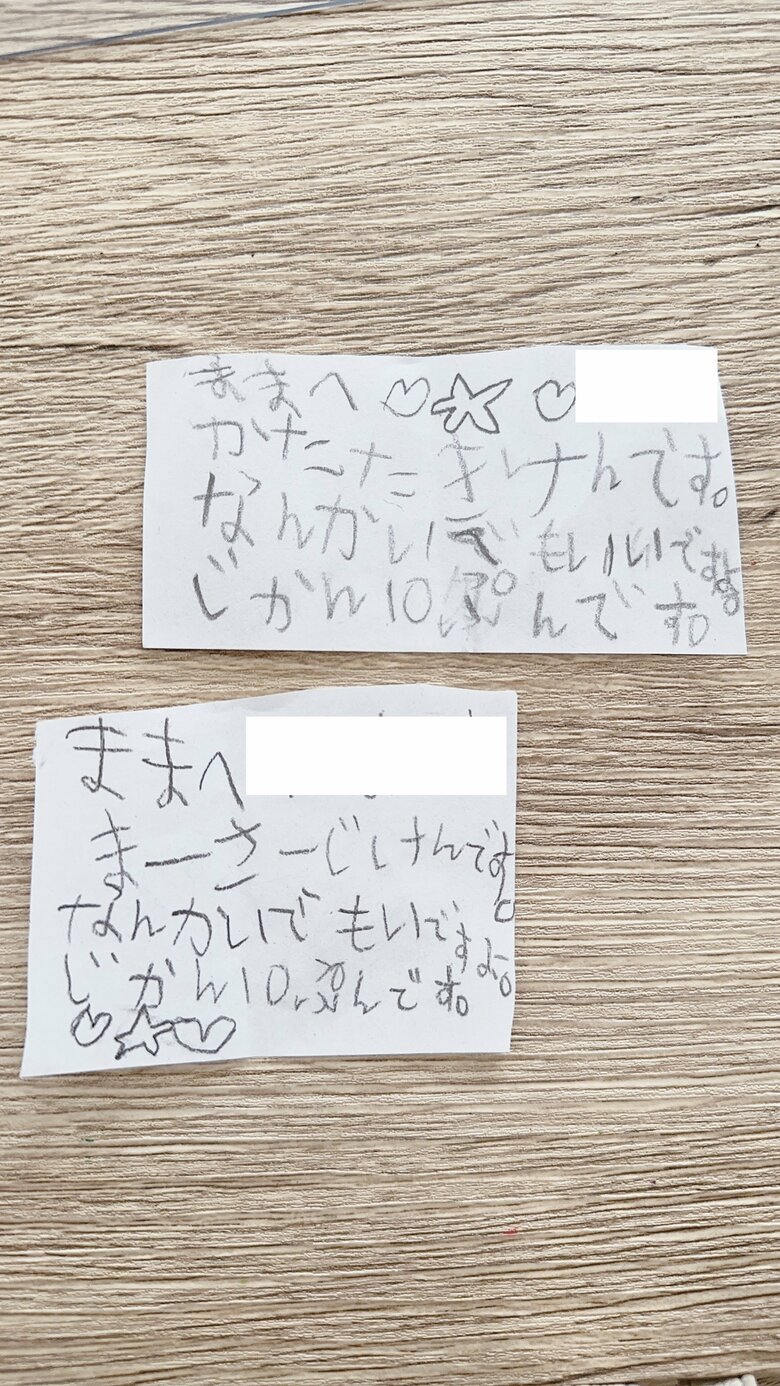 ままへ
かたたたきけんです。
なんかいでもいいですよ。
じかん10ぷんです。
ままへ
まーさーじけんです。
なんかいでもいですよ。
じかん10ぷんです。